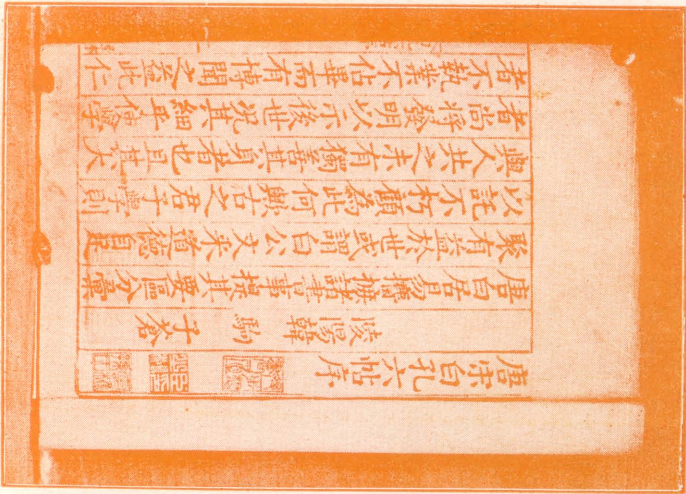 唐宋白孔六帖序
陵陽韓駒子蒼
唐白居易擿摭諸書事提其要區分彙
聚有益於世或謂白公文采道德自足
以託不朽顧為此何與古之君子學則
與人共之未有獨善其身者也且其大
者尚將發明以示後世況其細毋使學
者不執業不佔畢而有博聞之益此仁